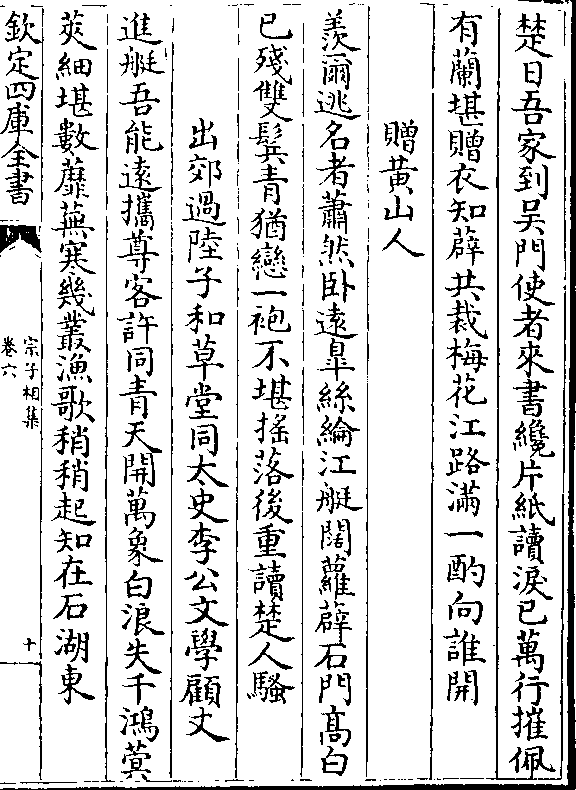 楚日吾家到吳門使者來書纔片紙讀淚已萬行摧佩
有蘭堪贈衣知薜共裁梅花江路滿一酌向誰開
贈黃山人
羨爾逃名者蕭然卧遠臯絲綸江艇闊蘿薜石門髙白
已殘雙鬂青猶戀一袍不堪搖落後重讀楚人騷
出郊過陸子和草堂同太史李公文學顧丈
進艇吾能遠攜尊客許同青天開萬象白浪失千鴻蓂
莢細堪數蘼蕪寒幾叢漁歌稍稍起知在石湖東
欽定四庫全書
宗子相集
卷六
十